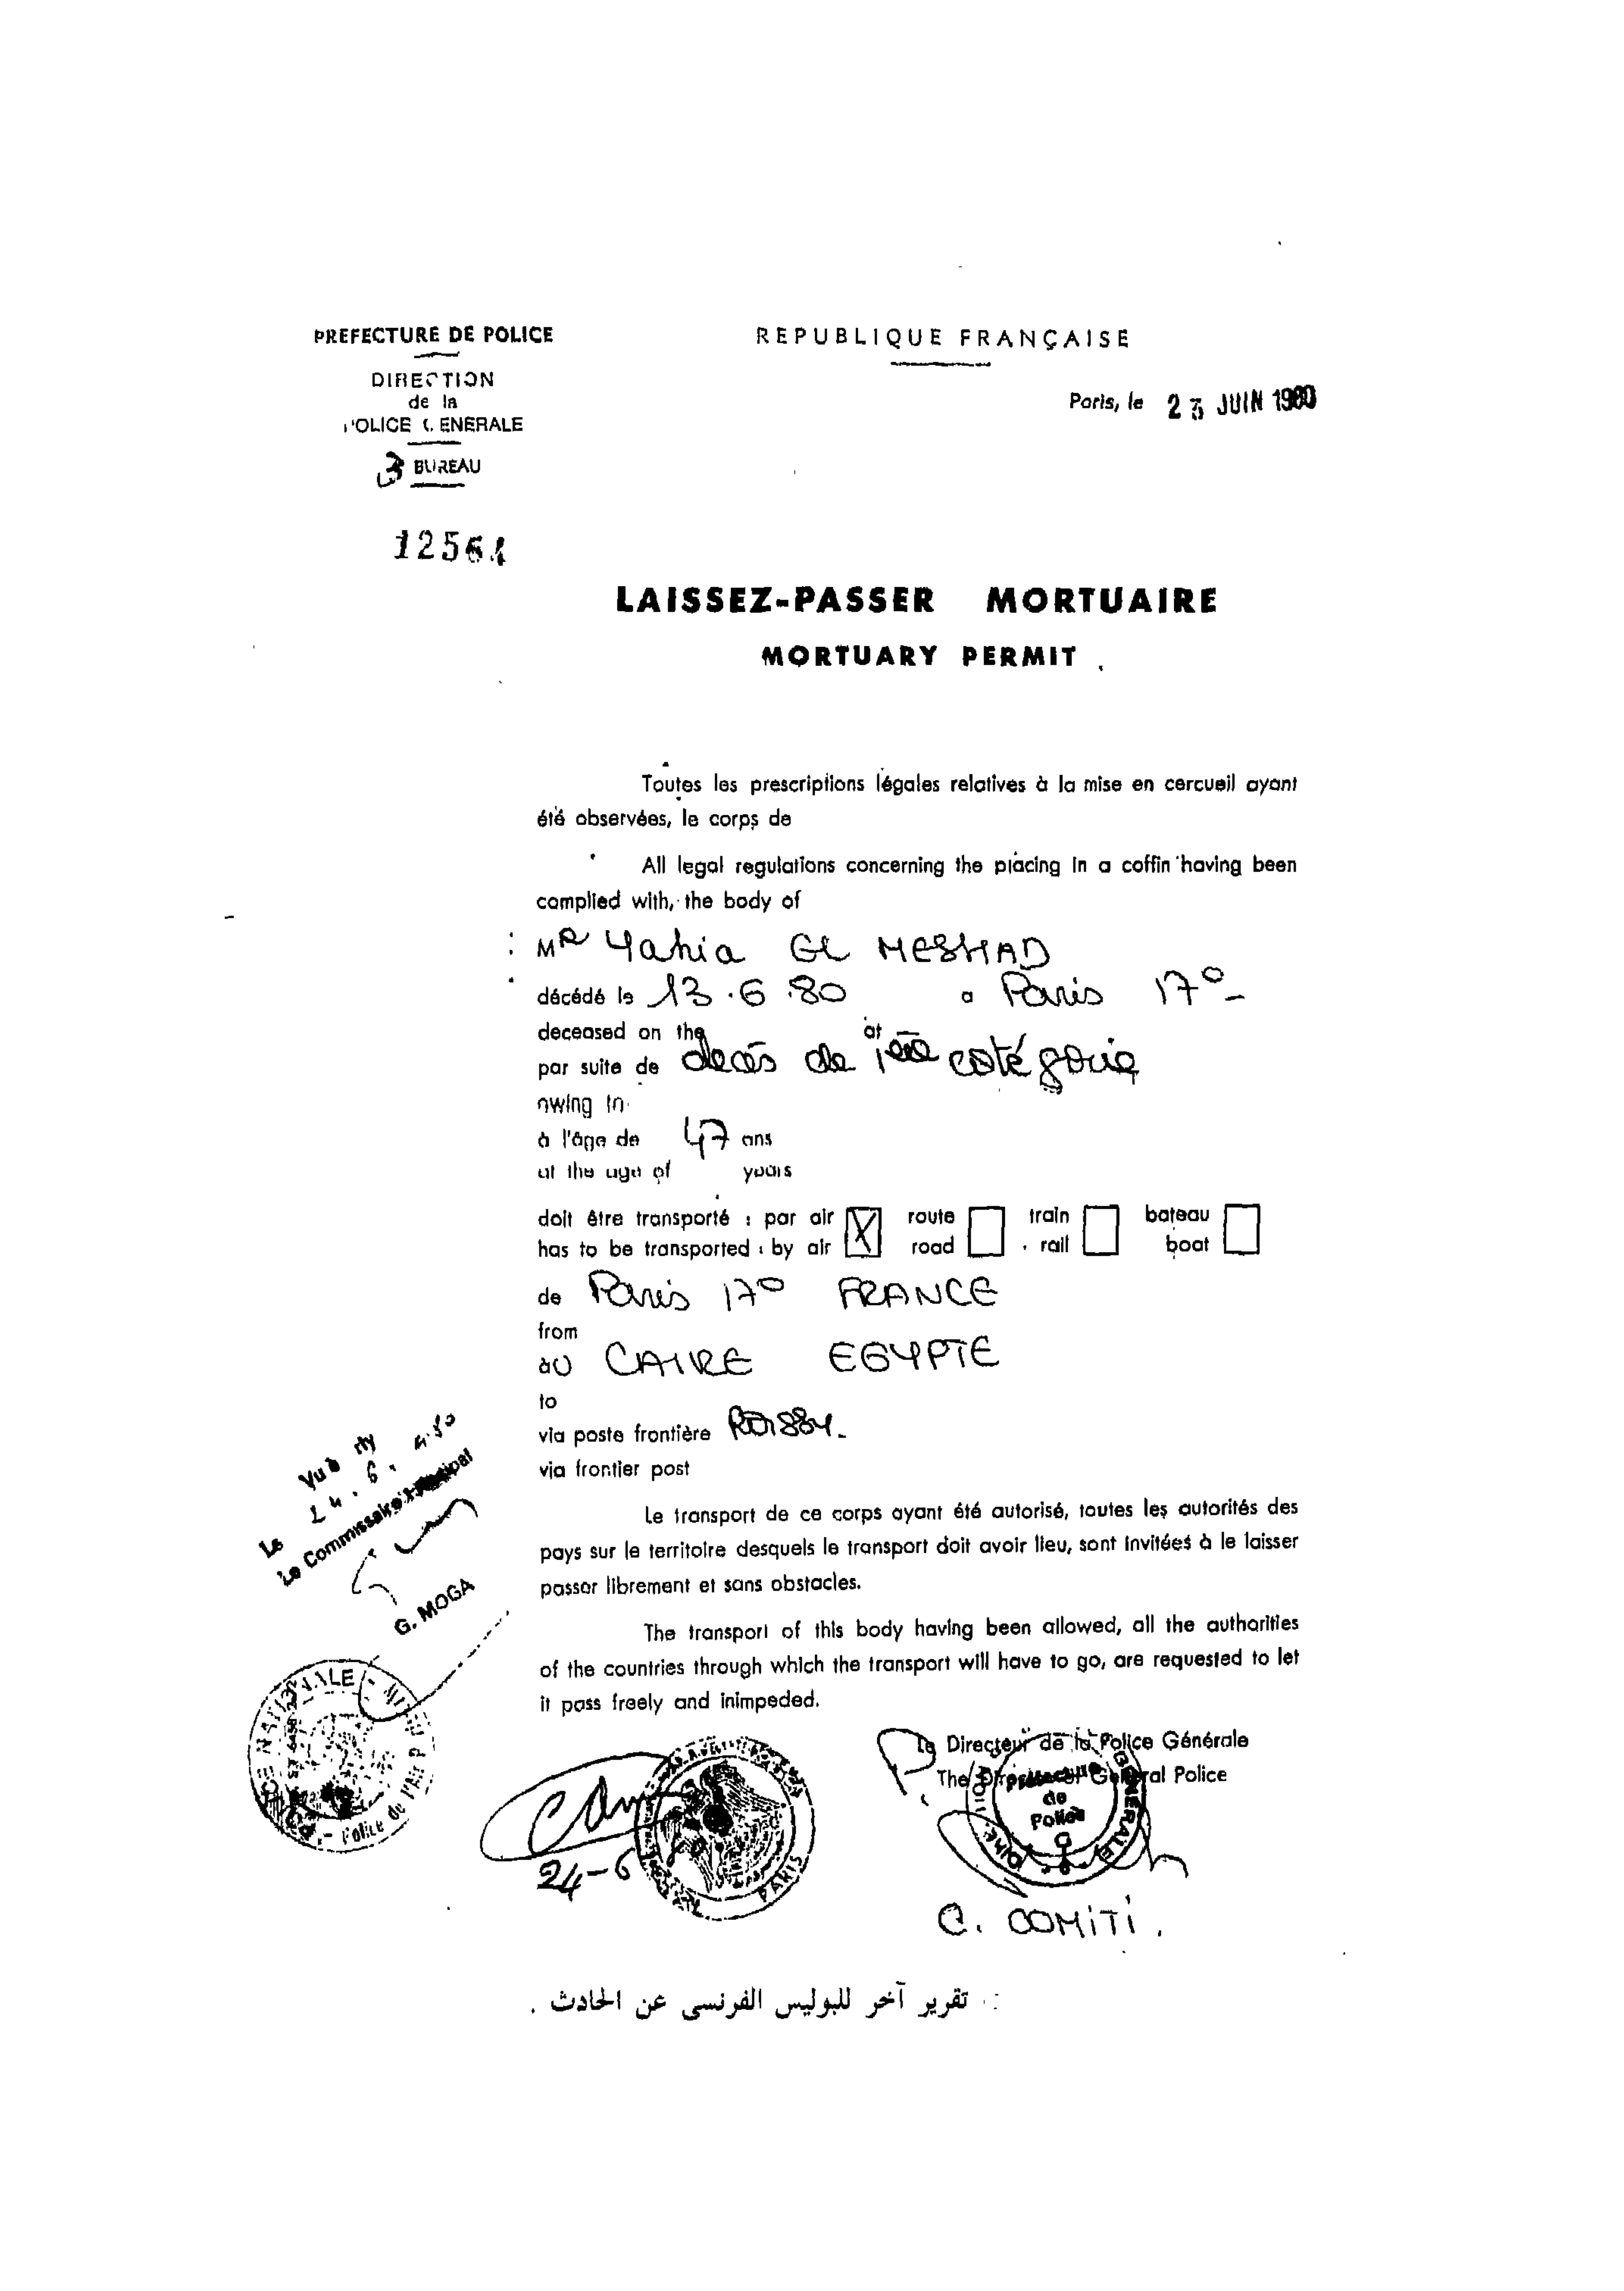 PREFECTURE DE POLICE
DIRECTION
de la
POLICE GENERALE
3 BUREAU
12564
REPUBLIQUE FRANÇAISE
Paris, le 23 JUIN 1980
LAISSEZ-PASSER MORTUAIRE
MORTUARY PERMIT
Toutes les prescriptions légales relatives à la mise en cercueil ayant
été observées, le corps de
All legal regulations concerning the placing in a coffin having been
complied with, the body of
MR Yahia EL MESHAD
décédé le 13.6.80 a Paris 17°-
deceased on the at
par suite de decés de 1ère catégorie
owing to
à l'âge de 47 ans
at the age of years
doit être transporté : par air X route train bateau
has to be transported : by air road rail boat
de Paris 17° FRANCE
from
àu CAIRE EGYPTE
to
via poste frontière ROISSY-
via frontier post
Le transport de ce corps ayant été autorisé, toutes les autorités des
pays sur le territoire desquels le transport doit avoir lieu, sont invitées à le laisser
passer librement et sans obstacles.
The transport of this body having been allowed, all the authorities
of the countries through which the transport will have to go, are requested to let
it pass freely and inimpeded.
Vu à
Le 24.6.
Le Commissaire Principal
G. MOGA
POLICE NATIONALE
Police de l'Air
24-6
PARIS
P. le Directeur de la Police Générale
The Director of General Police
Préfecture
de
Police
GÉNÉRALE
C. COMITI.
تقرير آخر للبوليس الفرنسى عن الحادث .